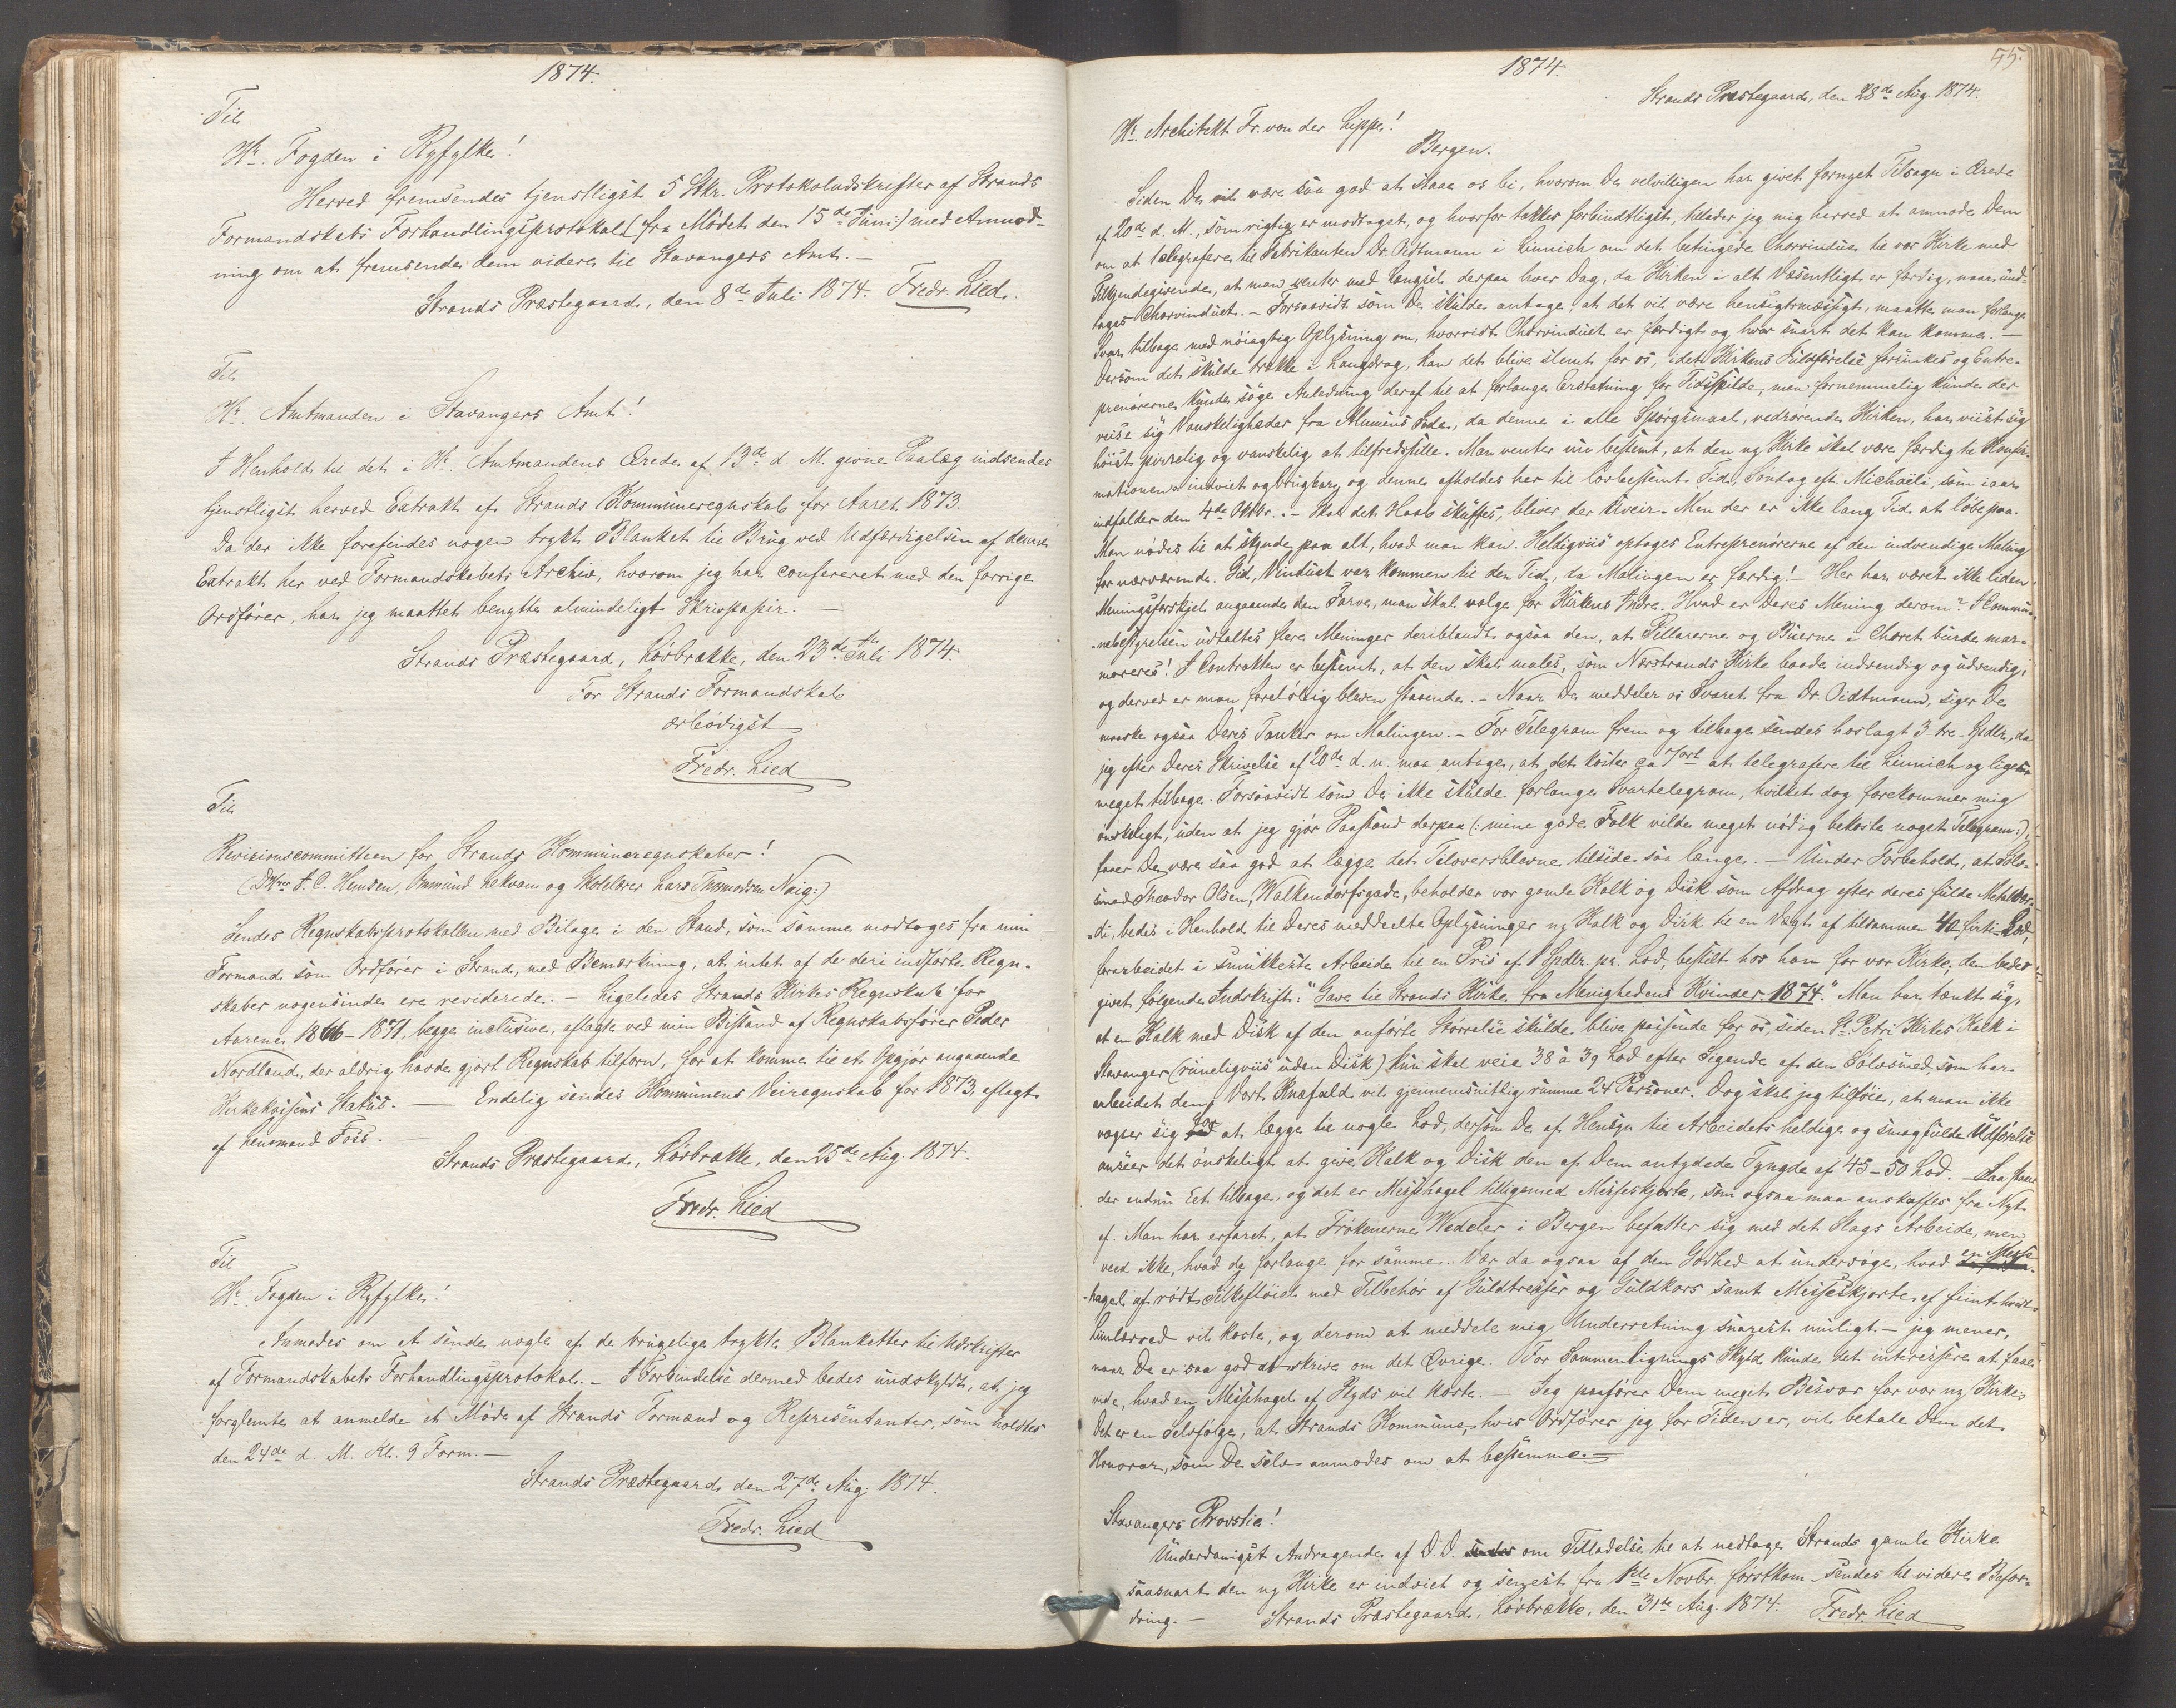 1874.
Til
Hr. Fogden i Ryfylke!
Herved fremsendes tjenstligst 5 Stkr. Protokoludskrifter af Strands
Formandskabs Forhandlingsprotokol (fra Mødet den 15de Juni:) med Anmod-
ning om at fremsende dem videre til Stavangers Amt. —
Strands Præstegaard, den 8de Juli 1874. Fredr. Lied.
Til
Hr. Amtmanden i Stavangers Amt!
I Henhold til det i Hr. Amtmandens Ærede af 13de d. M. givne Paalæg indsendes
tjenstligst herved Extrakt af Strands Kommuneregnskab for Aaret 1873.
Da der ikke forefindes nogen trykt Blanket til Brug ved Udfærdigelsen af denne
Extrakt her ved Formandskabets Archiv, hvorom jeg har confereret med den forrige
Ordfører, har jeg maattet benytte almindeligt Skrivpapir. —
Strands Præstegaard, Lørbrække, den 23de Juli 1874.
For Strands Formandskab
ærbødigst
Fredr. Lied
Til
Revisionscommitteen for Strands Kommuneregnskaber!
(DHrr I. C. Hemsen, Ommund Lekvam og Skolelærer Lars Thormodsen Nag:)
Sendes Regnskabsprotokollen med Bilage i den Stand, som samme modtoges fra min
Formand som Ordfører i Strand, med Bemærkning, at intet af de deri indførte Regn-
skaber nogensinde ere reviderede. — Ligeledes Strands Kirkes Regnskab for
Aarene 1866–1871, begge inclusive, aflagte ved min Bistand af Regnskabsfører Peder
Nordland, der aldrig havde gjort Regnskab tilforn, for at komme til et Opgjør angaaende
Kirkekassens Status. — Endelig sendes Kommunens Veiregnskab for 1873, aflagt
af Lensmand Foss. —
Strands Præstegaard, Lørbrække, den 25de Aug. 1874.
Fredr. Lied
Til
Hr. Fogden i Ryfylke!
Anmodes om at sende nogle af de brugelige trykte Blanketter til Udskrifter
af Formandskabets Forhandlingsprotokol. — I Forbindelse dermed bedes undskyldt, at jeg
forglemte at anmelde et Møde af Strands Formænd og Repræsentanter, som holdtes
den 24de d. M. Kl. 9 Form. —
Strands Præstegaard den 27de Aug. 1874.
Fredr. Lied
55.
1874.
Strands Præstegaard, den 28de Aug. 1874.
Hr. Architekt Fr. von der Lippe!
Bergen.
Siden De vil være saa god at staae os bi, hvorom De velvilligen har givet fornyet Tilsagn i Ærede
af 20de d. M., som rigtig er modtaget, og hvorfor takkes forbindtligst, tillader jeg mig herved at anmode Dem
om at telegrafere til Fabrikanten Dr. Oidtmann i Linnich om det betingede Chorvindue til vor Kirke med
Tilkjendegivende, at man venter med Længsel derpaa hver Dag, da Kirken i alt Væsentligt er færdig, naar und-
tages Chorvinduet. — Forsaavidt som De skulde antage, at det vil være hensigtsmæssigt, maatte man forlange
Svar tilbage med nøiagtig Oplysning om, hvorvidt Chorvinduet er færdigt og hvor snart det kan komme. —
Dersom det skulde trække i Langdrag, kan det blive slemt for os, idet Kirkens Fuldførelse forsinkes og Entre-
prenørerne kunde søge Anledning deraf til at forlange Erstatning for Tidsspilde, men fornemmelig kunde der
reise sig Vanskeligheder fra Almuens Side, da denne i alle Spørgsmaal, vedrørende Kirken, har viist sig
høist pirrelig og vanskelig at tilfredsstille. Man venter nu bestemt, at den ny Kirke skal være færdig til Konfir-
mationen indviet og brugbar, og denne afholdes her til lovbestemt Tid, Søndag eft. Michaëli, som iaar
indfalder den 4de Oktbr. — Skal det Haab skuffes, bliver der Uveir. Men der er ikke lang Tid at løbe paa.
Man nødes til at skynde paa alt, hvad man kan. Heldigviis optages Entreprenørerne af den indvendige Maling
for nærværende. Gid, Vinduet var kommen til den Tid, da Malingen er færdig! — Her har været ikke liden
Meningsforskjel angaaende den Farve, man skal vælge for Kirkens Indre. Hvad er Deres Mening derom? I Kommu-
nebestyrelsen udtaltes flere Meninger deriblandt ogsaa den, at Pillarerne og Buerne i Choret burde mar-
moreres! I Contrakten er bestemt, at den skal males, som Nærstrands Kirke baade indvendig og udvendig,
og derved er man foreløbig bleven staaende. — Naar De meddeler os Svaret fra Dr. Oidtmann, siger De
maaske ogsaa Deres Tanker om Malingen. — For Telegram frem og tilbage sendes hoslagt 3 tre Spdlr., da
jeg efter Deres Skrivelse af 20de d. M. maa antage, at det koster ca 7 ort at telegrafere til Linnich og ligesaa
meget tilbage. Forsaavidt som De ikke skulde forlange Svartelegram, hvilket dog forekommer mig
ønskeligt, uden at jeg gjør Paastand derpaa (: mine gode Folk vilde meget nødig bekoste noget Telegram:),
faaer De være saa god at lægge det Tiloversblevne tilside saa længe. — Under Forbehold, at Sølv-
smed Theodor Olsen, Walkendorfsgade, beholder vor gamle Kalk og Disk som Afdrag efter deres fulde Metalvær-
di, bedes i Henhold til Deres meddeelte Oplysninger ny Kalk og Disk til en Vægt af tilsammen 40 firti Lod,
forarbeidet i smukkeste Arbeide til en Pris af 1 Spdlr. pr. Lod, bestilt hos ham for vor Kirke, den bedes
givet følgende Indskrift: "Gave til Strands Kirke fra Menighedens Kvinder 1874." Man har tænkt sig,
at en Kalk med Disk af den anførte Størrelse skulde blive passende for os, siden St. Petri Kirkes Kalk i
Stavanger (rimeligviis uden Disk) kun skal veie 38 à 39 Lod efter Sigende af den Sølvsmed, som har
arbeidet den. Vort Knæfald vil gjennemsnitlig rumme 24 Personer. Dog skal jeg tilføie, at man ikke
vogter sig for at lægge til nogle Lod, dersom De af Hensyn til Arbeidets heldige og smagfulde Udførelse
anseer det ønskeligt at give Kalk og Disk den af Dem antydede Tyngde af 45–50 Lod. — Saa staaer
der endnu Eet tilbage, og det er Messehagel tilligemed Messeskjorte, som ogsaa maa anskaffes fra Nyt
af. Man har erfaret, at Frøknerne Wedeler i Bergen befatter sig med det Slags Arbeide, men
veed ikke, hvad de forlange for samme. Vær da ogsaa af den Godhed at undersøge, hvad en Messe-
hagel af rødt Silkefløiel med Tilbehør af Guldtresser og Guldkors samt Messeskjorte af feint hvidt
Linlærred vil koste, og derom at meddele mig Underretning snarest muligt — jeg mener,
naar De er saa god at skrive om det Øvrige. For Sammenlignings Skyld kunde det interessere at faae
vide, hvad en Messehagel af Plyds vil koste. — Jeg paafører Dem meget Besvær for vor ny Kirke.
Det er en Selvfølge, at Strands Kommune, hvis Ordfører jeg for Tiden er, vil betale Dem det
Honorar, som De selv anmodes om at bestemme. —
Stavangers Provstie!
Underdanigst Andragende af D.D. om Tilladelse til at nedtage Strands gamle Kirke
saasnart den ny Kirke er indviet og senest fra 1ste Novbr. førstkom. sendes til videre Befor-
dring. — Strands Præstegaard, Lørbrække, den 31te Aug. 1874. Fredr. Lied